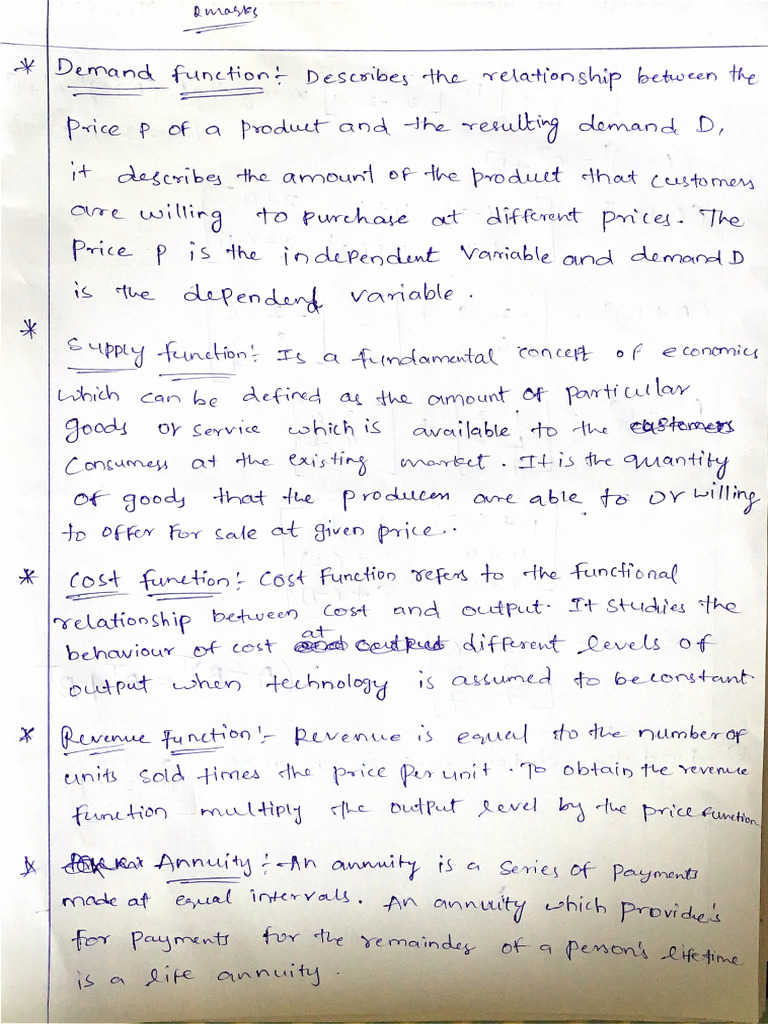 2 marks
* Demand function:- Describes the relationship between the
price p of a product and the resulting demand D,
it describes the amount of the product that customers
are willing to purchase at different prices. The
price p is the independent variable and demand D
is the dependent variable.
*
Supply function:- Is a fundamental concept of economics
which can be defined as the amount of particular
goods or service which is available to the customers
Consumers at the existing market. It is the quantity
of goods that the producers are able to or willing
to offer for sale at given price..
* Cost function:- Cost Function refers to the functional
relationship between cost and output. It studies the
at
behaviour of cost and output different levels of
output when technology is assumed to be constant
* Revenue function:- Revenue is equal to the number of
units sold times the price per unit. To obtain the revenue
function multiply the output level by the price function
* Annuity:- An annuity is a series of payments
made at equal intervals. An annuity which provide's
for payments for the remainder of a person's lifetime
is a life annuity.